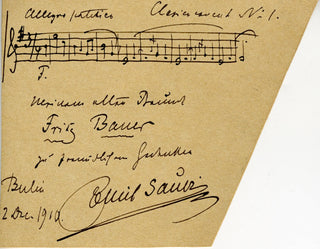 Allegro patetico Clavierconcert No 1.
F.
Meinem alten Freund
Fritz Bauer
zu freundlichem Gedenken
Berlin
2 Dec. 1910
Emil Sauer